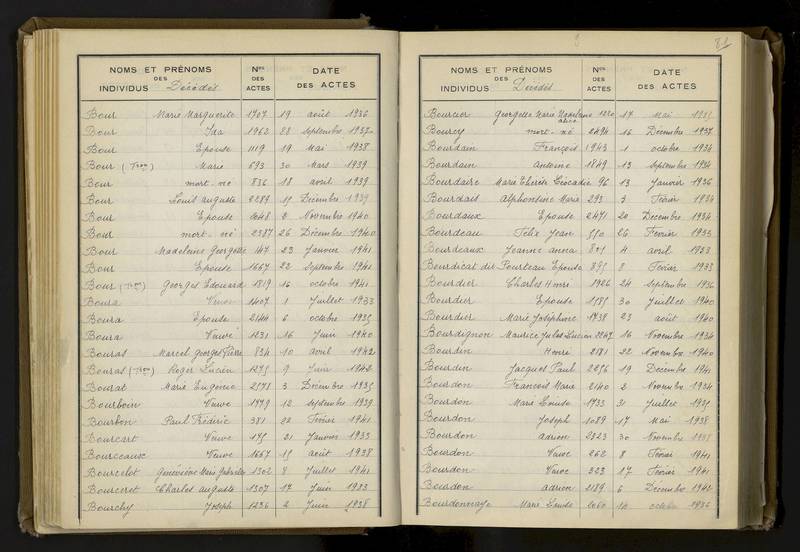 NOMS ET PRÉNOMS DES INDIVIDUS Décédés Nos DES ACTES DATE DES ACTES
Bour Marie Marguerite 1707 19 août 1936
Bour Ida 1962 28 septembre
Bour Epouse 1119 19 Mai 1938
Bour Marie 693 30 Mars 1939
Bour mort né 836 18 avril 1939
Bour Louis auguste 2289 Décembre 1939
Bour Epouse 2 Novembre 1940
Bour mort né 2387 26 Décembre 1940
Bour Madeleine Georgette 147 23 Janvier 1941
Bour Epouse 1667 22 Septembre 1941
Bour Georges Edouard 1819 16 octobre 1941
Boura Veuve 1407 1 Juillet 1933
Boura Epouse 2144 6 octobre 1935
Boura Veuve 1231 16 Juin 1940
Bouras Marcel Georges Pierre 834 10 avril 1942
Bouras Roger Lucien 1275 9 Juin 1942
Bourat Marie Eugénie 2578 3 Décembre 1935
Bourboin Veuve 1779 12 septembre 1939
Bourbon Paul Frédéric 381 22 Février 1941
Bourcart Veuve 175 21 Janvier 1933
Bourceaux Veuve 1667 15 août 1938
Bourcelot Geneviève Marie Gabrielle 1302 8 Juillet 1941
Bourceret Charles auguste 1307 17 Juin 1933
Bourchy Joseph 1236 2 Juin 1938
81
NOMS ET PRÉNOMS DES INDIVIDUS Décédés Nos DES ACTES DATE DES ACTES
Bourcier Georgette Marie 1220 17 Mai 1935
Bourcy mort-né 2494 16 Décembre 1937
Bourdain François 1943 1 octobre 1934
Bourdain Antoine 1849 13 septembre 1934
Bourdaire Marie Thérèse Léocadie 96 13 Janvier 1936
Bourdais Alphonsine Marie 293 3 Février 1934
Bourdaux Epouse 2471 20 Décembre 1934
Bourdeau Félix Jean 550 26 Février 1933
Bourdeaux Jeanne anna 4 avril 1933
Bourdicat dit Pourteau Epouse 395 8 Février 1933
Bourdier Charles Henri 1926 24 septembre 1936
Bourdier Epouse 1585 30 Juillet 1940
Bourdier Marie Joséphine 1738 23 août 1940
Bourdignon Maurice Jules Lucien 2247 16 Novembre 1934
Bourdin Henri 2181 22 Novembre 1940
Bourdin Jacques Paul 2256 19 Décembre 1941
Bourdon François Marie 2140 2 Novembre 1934
Bourdon Marie Louise 1733 31 Juillet 1935
Bourdon Joseph 1089 17 Mai 1938
Bourdon adrien 2323 30 Novembre 1938
Bourdon Veuve 262 8 Février 1941
Bourdon Veuve 323 17 Février 1941
Bourdon adrien 2189 6 Décembre 1942
Bourdonnaye Marie Louise 2060 10 octobre 1936